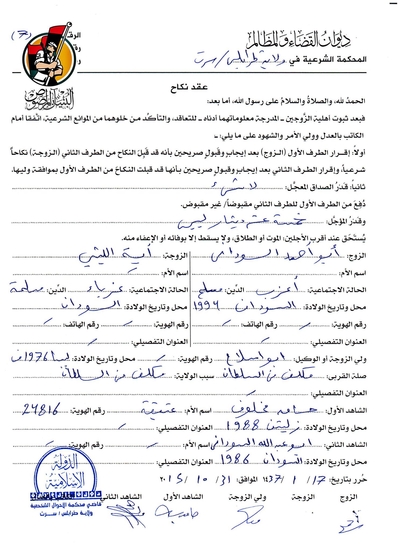 ديوان القضاء والمظالم
المحكمة الشرعية في ولاية طرابلس / سرت
الرقم (٣)
البنيان المرصوص
عقد نكاح
الحمدُ لله، والصلاةُ والسلامُ على رسول الله، أما بعد:
فبعد ثبوت أهلية الزَّوجين ـ المدرجة معلوماتهما أدناه ـ للتعاقد، والتأكُّد من خلوهما من الموانع الشرعية، اتَّفقا أمام
الكاتب بالعدل وولي الأمر والشهود على ما يلي:ـ
أولاً: إقـرار الطرف الأول (الـزوج) بعد إيجابٍ وقبولٍ صريحين بأنه قد قَبِلَ النكاح من الطرف الثاني (الـزوجة) نكاحاً
شرعياً، وإقرار الطرف الثاني بعد إيجابٍ وقبولٍ صريحين بأنها قد قبلت النكاح من الطرف الأول بموافقة وليها.
ثانيـاً: قدرُ الصداق المعجّل: لا شيء
دُفِعَ من الطرف الأول للطرف الثاني مقبوضاً/ غير مقبوض.
وقدرُ المؤجَّل: خمسة عشر دينار ليبي
يُستَحق عند أقرب الأجلين: الموت أو الطلاق، ولا يسقط إلا بوفائه أو الإعفاء منه.
الزوج: أبو أحمد السوداني الزوجة: آية الليثي
اسم الأم: اسم الأم:
الحالة الاجتماعية: أعزب الدِّين: مسلم الحالة الاجتماعية: عزباء الدِّين: مسلمة
محل وتاريخ الولادة: السودان 1994 محل وتاريخ الولادة: السودان
رقم الهوية: رقم الهاتف: رقم الهوية: رقم الهاتف:
العنوان التفصيلي: العنوان التفصيلي:
ولي الزوجة أو الوكيل: ابو اسلام رقم الهوية: محل وتاريخ الولادة: 1976
صلة القربى: مكلف من السلطان سبب الولاية: مكلف من السلطان
العنوان التفصيلي:
الشاهد الأول: حسامه مخلوف اسم الأم: عتيقة رقم الهوية: 24816
محل وتاريخ الولادة: زليتن 1988 العنوان التفصيلي:
الشاهد الثاني: ابو عبد الله السوداني اسم الأم: رقم الهوية:
محل وتاريخ الولادة: السودان 1986 العنوان التفصيلي:
حُرر بتاريخ: ١٧ / ١ / ١٤٣٧ ٣١ / ١٠ / ٢٠١٥
الزوج الزوجة ولي الزوجة الشاهد الأول الشاهد الثاني
الدولة
الإسلامية
قاضي محكمة الأحوال الشخصية
ولاية طرابلس / سرت